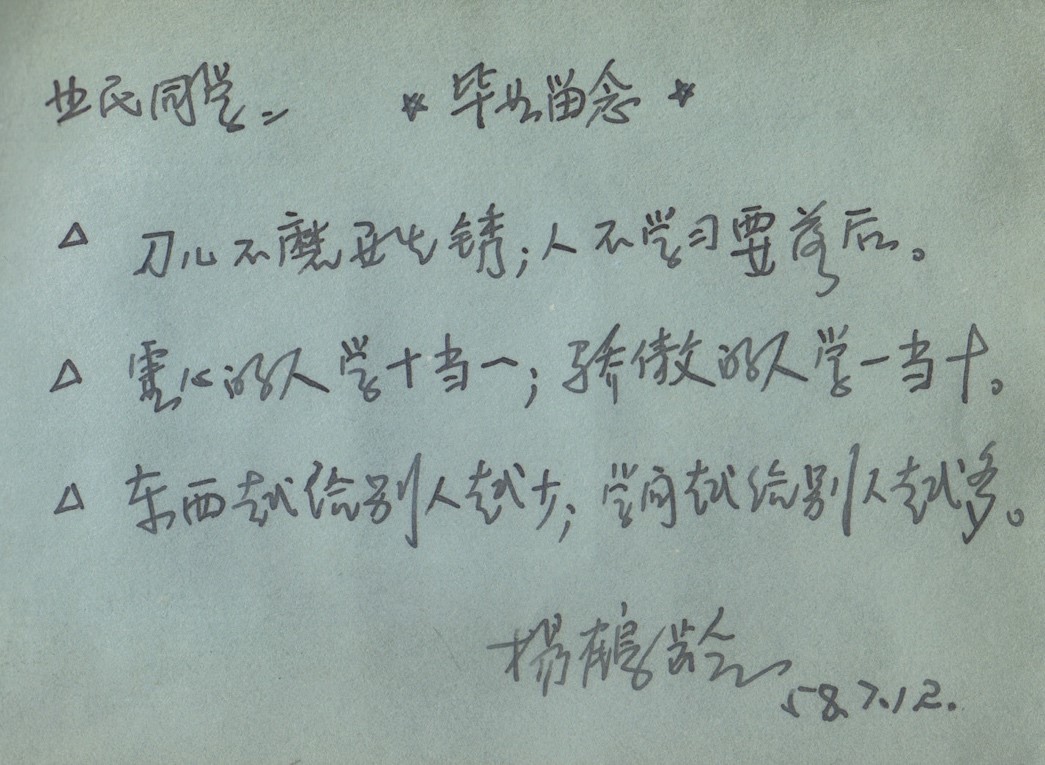 世民同学： ☆ 毕业留念 ☆
△ 刀儿不磨要生锈；人不学习要落后。
△ 虚心的人学十当一；骄傲的人学一当十。
△ 东西越给别人越少；学问越给别人越多。
楊鹤龄
58.7.12.